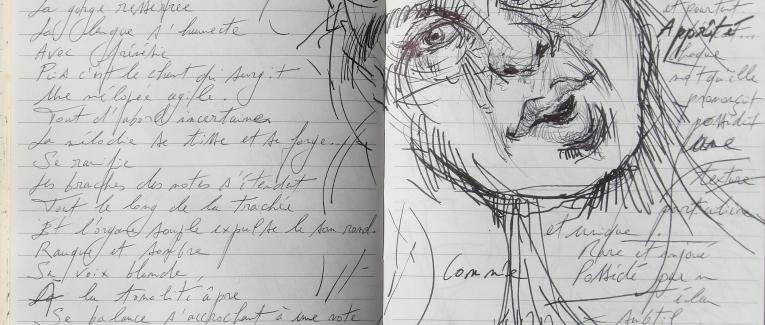 La gorge resserrée
La langue s'humecte
Avec frénésie
Puis c'est le chant qui surgit
Une mélopée agile.
Tout d'abord incertaines
La mélodie se tisse et se forge...
Se raréfie
Les branches des notes s'étendent
Tout le long de la trachée
Et l'organe souple expulse le son rond.
Rauque et sombre
Sa voix blonde
A la tonalité âpre
Se balance s'accrochant à une note
et pourtant
Apprêté...
Chaque
mot qu'elle
prononçait
possédait
une
texture
particulière
et unique.
Rare et enjoué
Comme
Possédé par un
élan
subtil